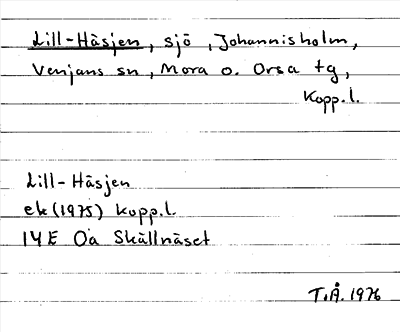 Lill-Häsjen, sjö, Johannisholm,
Venjans sn, Mora o. Orsa tg,
Kopp.l.
Lill-Häsjen
ek (1975) Kopp.l.
14E 0a Skållnäset
T.Å. 1976